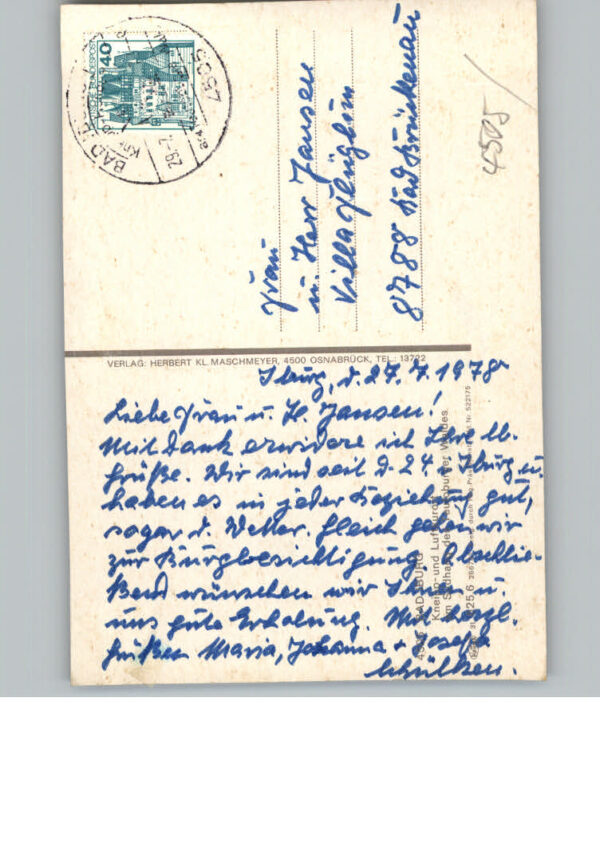 40
4505
BAD
29.-7.
4505
Frau
u. Herr Jansen
Villa Flügling
8788 Bad Brückenau
VERLAG: HERBERT KL. MASCHMEYER, 4500 OSNABRÜCK, TEL.: 13722
Iburg, d. 27. 7. 1978
Liebe Frau u. H. Jansen!
Mit Dank erwidere ich Ihre lb.
Grüße. Wir sind seit d. 24. i. Iburg u.
haben es in jeder Beziehung gut,
sogar d. Wetter. Gleich gehen wir
zur Burgbesichtigung. Abschlie-
ßend wünschen wir Ihnen u.
uns gute Erholung. Mit herzl.
Grüßen Maria, Johanna + Josefa
Schülken.
BAD IBURG
Kneipp- und Luftkurort
am Südhang des Teutoburger Waldes